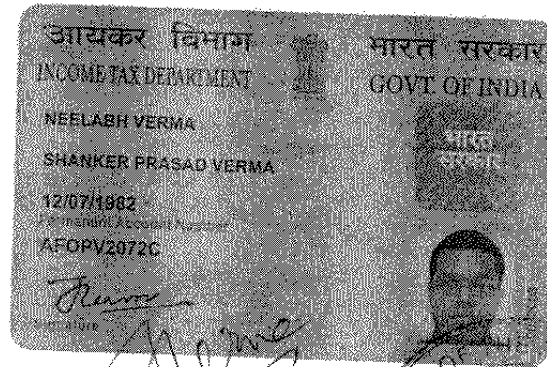 आयकर विभाग
INCOME TAX DEPARTMENT
भारत सरकार
GOVT. OF INDIA
NEELABH VERMA
SHANKER PRASAD VERMA
12/07/1982
Permanent Account Number
AFOPV2072C
Signature
भारत
सरकार